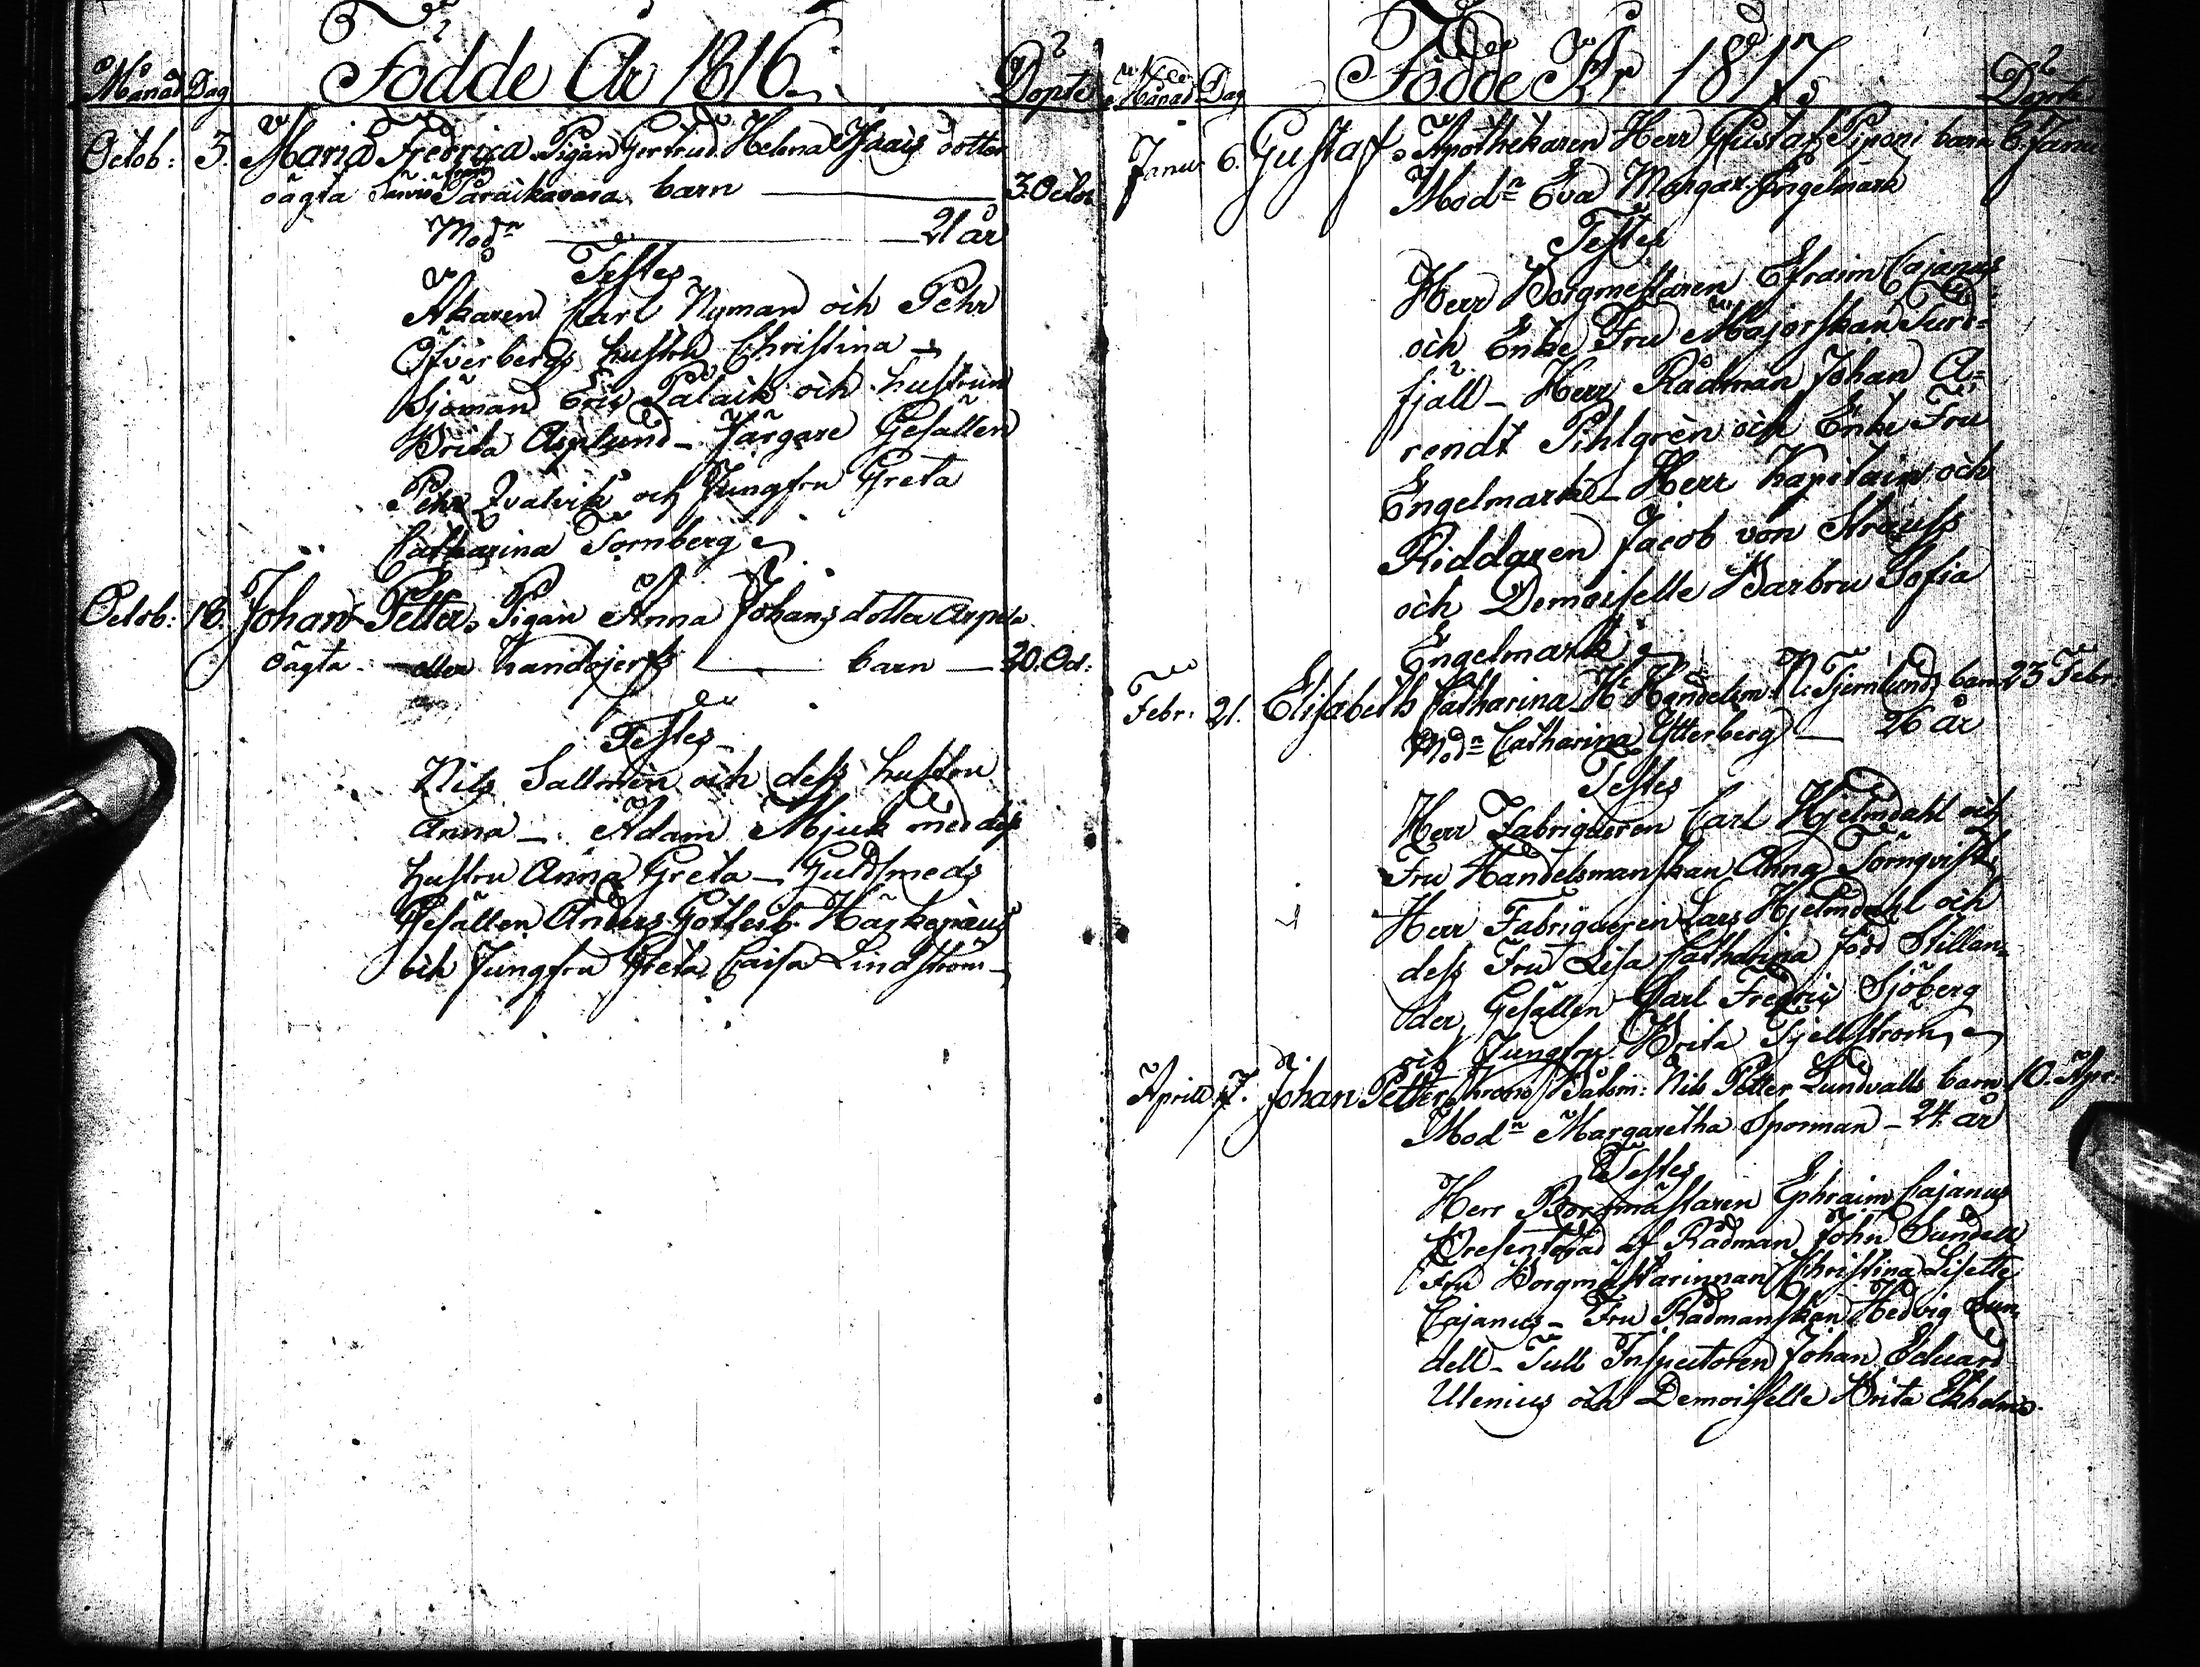 Månad Dag Födde År 1816. Döpte
Octob: 3. Maria Fredrica. Pigan Gertrud Helena Isaacs dotter
oägta barn 3. Octob
Modn 21 år
Testes
Åkaren Carl Nyman och Pehr
Öfverbergs hustru Christina
Sjöman Eric Palaick och hustrun
Brita Asplund - Färgare Gesällen
Pehr Qvalvik och Jungfru Greta
Catharina Törnberg
Octob: 18. Johan Petter. Pigan Anna Johans dotter Arpela
oägta eller Kandojerfs barn 20. Oct:
Testes
Nils Sallmén och dess hustru
Anna - Adam Mjuk med dess
hustru Anna Greta - Guldsmeds
Gesällen Anders Gottlieb
och Jungfru Greta Caisa Lindström
Månad Dag Födde År 1817. Döpte
Janu 6. Gustaf. Apothekaren Herr Gustaf Piponi barn 6. Janu
Modn Eva Margar. Engelmark
Testes
Herr Borgmestaren Efraim Cajanus
och Enke Fru Majorskan Turd-
fjäll - Herr Rådman Johan A-
rendt Pihlgrén och Enke Fru
Engelmark - Herr Kapitain och
Riddaren Jacob von Strauss
och Demoiselle Barbru Sofia
Engelmark
Febr. 21. Elisabeth Catharina Hr Handelsm. N. Tjernlunds barn 23 Febr.
Modn Catharina Ytterberg - 26 år
Testes
Herr Fabriqueren Carl Hjelmdahl och
Fru Handelsmanskan Anna Törnqvist
Herr Fabriqueren Lars Hjelmdahl och
dess Fru Lisa Catharina född Stillan-
der Gesällen Carl Fredric Sjöberg
och Jungfru Brita Fjellström
Aprill 7. Johan Petter Krono Båtsm: Nils Petter Lundvalls barn 10. Apr.
Modn Margaretha Sporman - 24 år
Testes
Herr Borgmästaren Ephraim Cajanus
af Rådman John Sundell
Fru Borgmästarinnan Christina Lisette
Cajanus - Fru Rådmanskan Hedvig Sun
dell - Tull Inspectoren Johan Eduard
Ulenius och Demoiselle Brita Ekholm.